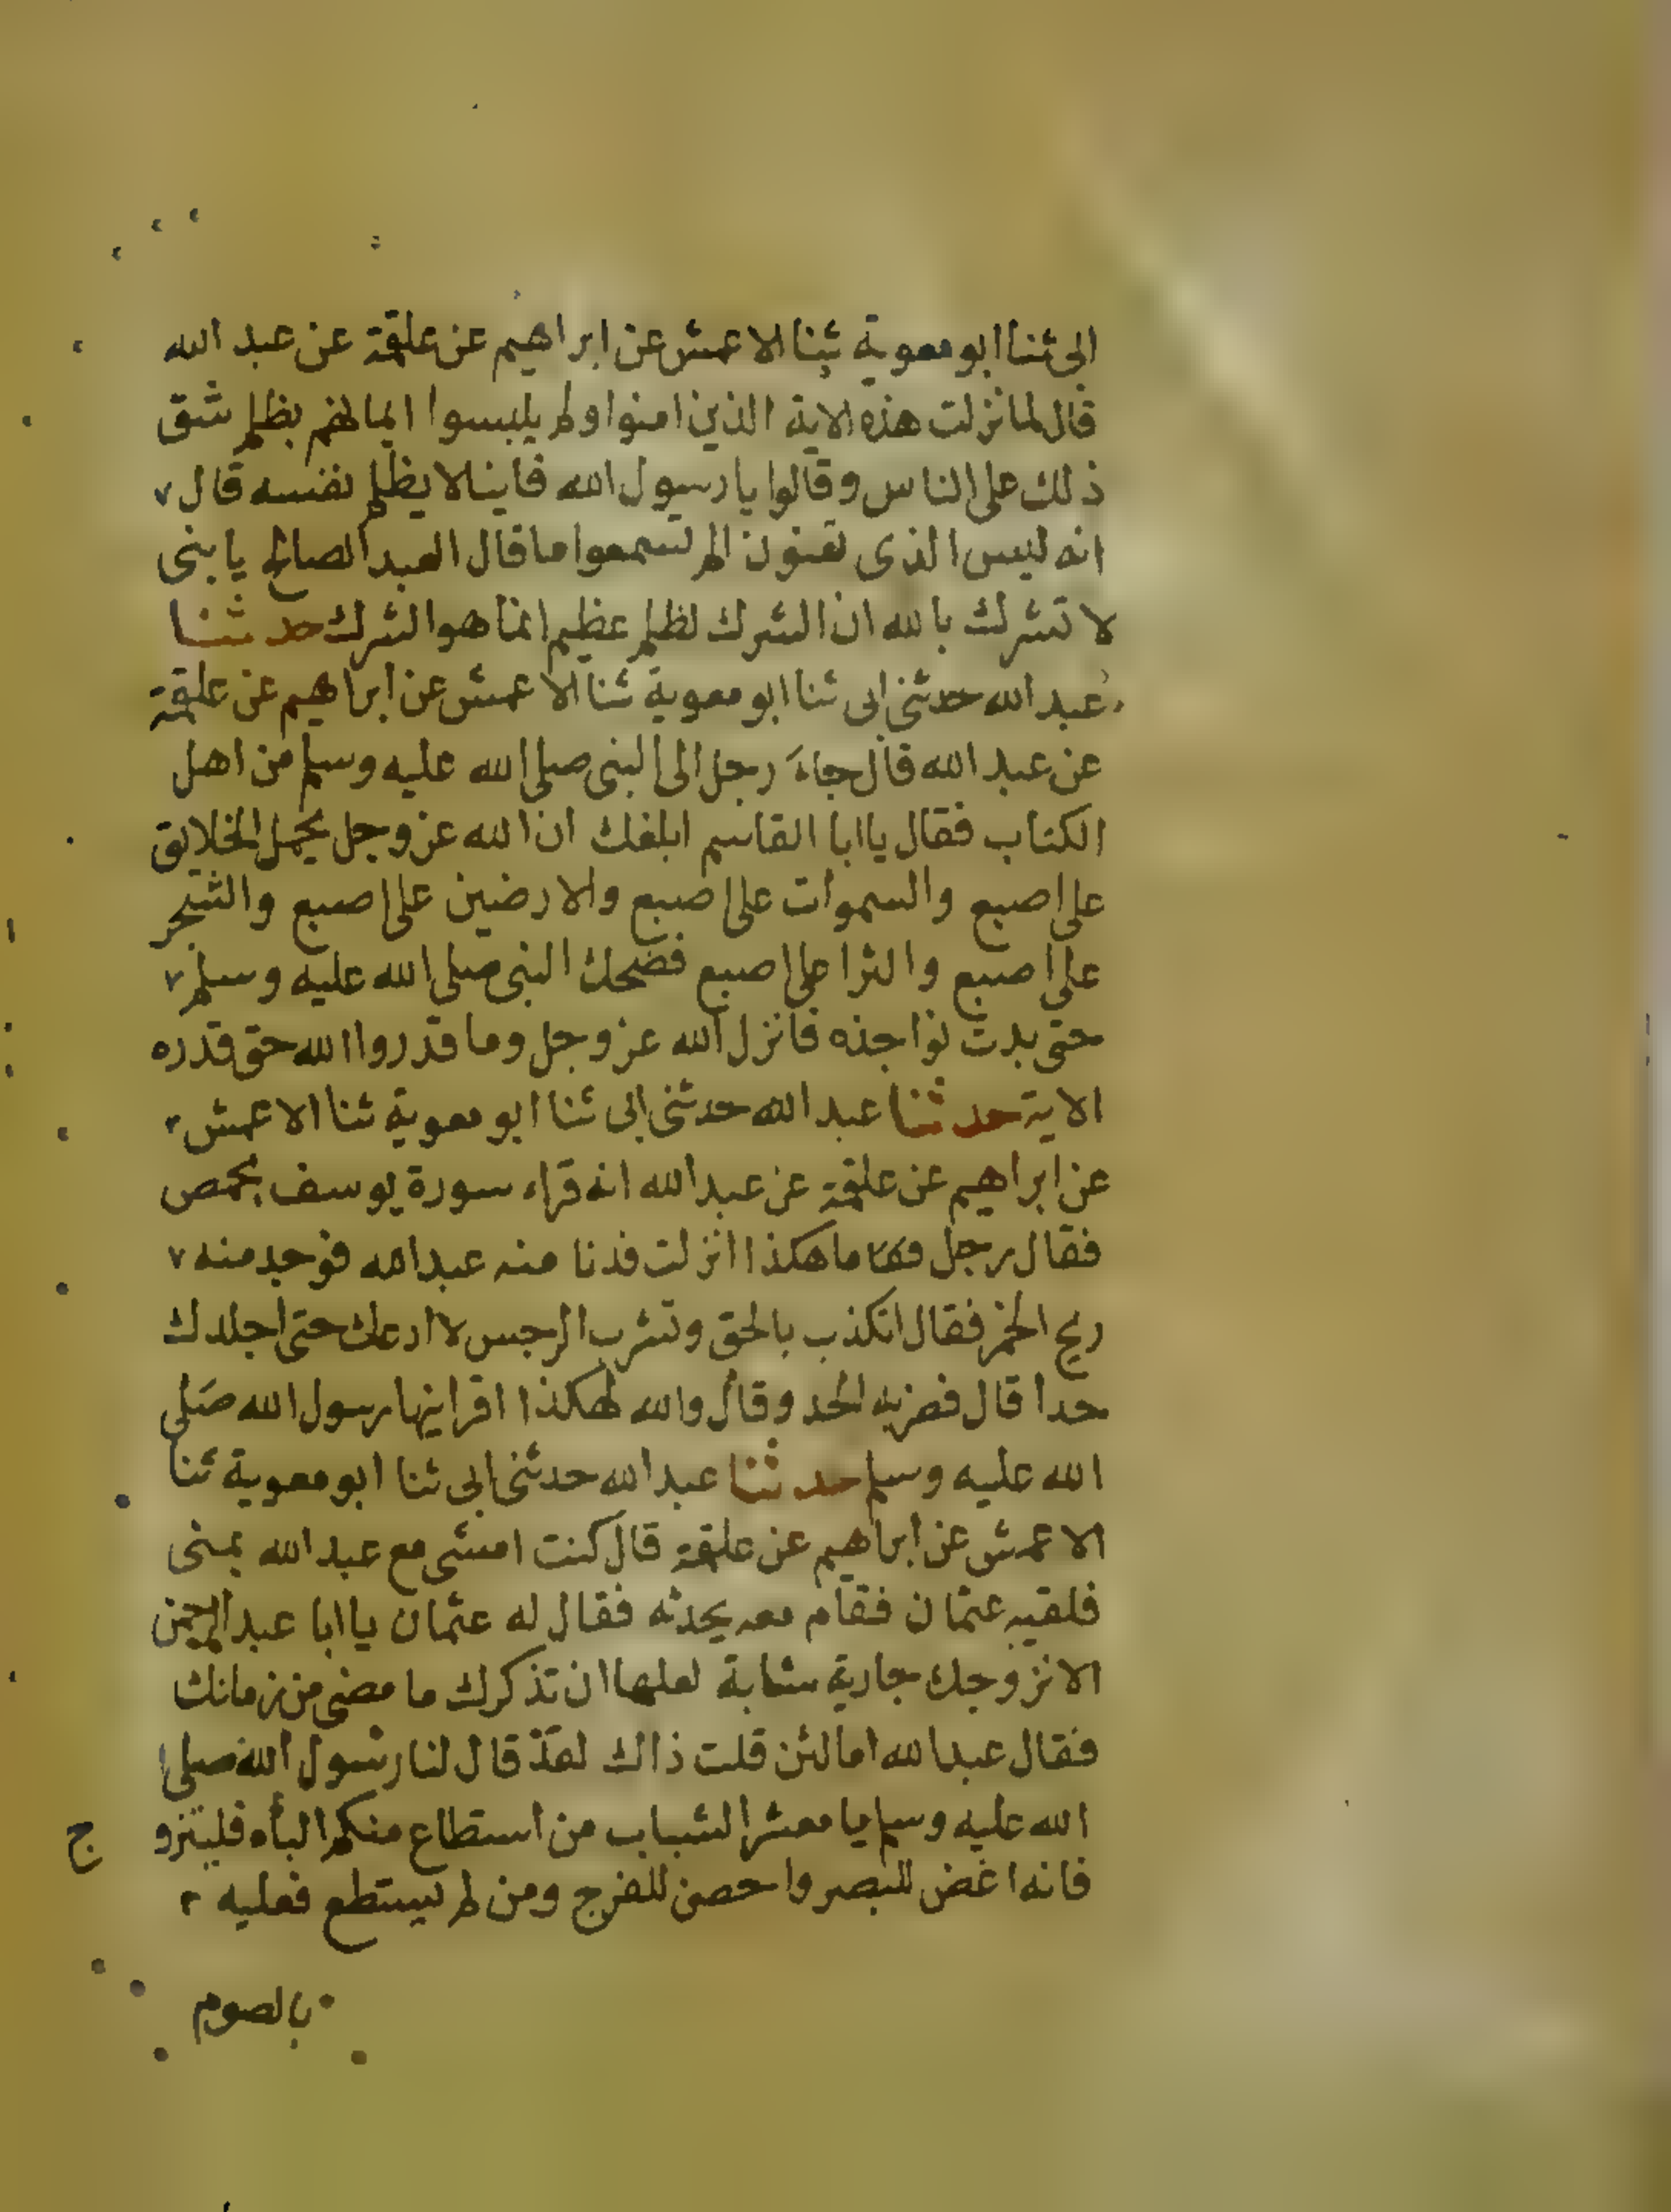 ابى ثنا ابو معوية ثنا الاعمش عن ابراهيم عن علقمة عن عبد الله
قال لما نزلت هذه الاية الذين امنوا ولم يلبسوا ايمانهم بظلم شق
ذلك على الناس وقالوا يا رسول الله فاينا لا يظلم نفسه قال
انه ليس الذى تعنون الم تسمعوا ما قال العبد الصالح يا بنى
لا تشرك بالله ان الشرك لظلم عظيم انما هو الشرك حدثنا
عبد الله حدثنى ابى ثنا ابو معوية ثنا الاعمش عن ابراهيم عن علقمة
عن عبد الله قال جاء رجل الى النبى صلى الله عليه وسلم من اهل
الكتاب فقال يا ابا القاسم ابلغك ان الله عز وجل يحمل الخلايق
على اصبع والسموات على اصبع والارضين على اصبع والشجر
على اصبع والثرا على اصبع فضحك النبى صلى الله عليه وسلم
حتى بدت نواجذه فانزل الله عز وجل وما قدروا الله حق قدره
الاية حدثنا عبد الله حدثنى ابى ثنا ابو معوية ثنا الاعمش
عن ابراهيم عن علقمة عن عبد الله انه قراء سورة يوسف بحمص
فقال رجل ما هكذا انزلت فدنا منه عبد الله فوجد منه
ريح الخمر فقال اتكذب بالحق وتشرب الرجس لا ادعك حتى اجلدك
حدا قال فضربه الحد وقال والله لهكذا اقرانيها رسول الله صلى
الله عليه وسلم حدثنا عبد الله حدثنى ابى ثنا ابو معوية ثنا
الاعمش عن ابراهيم عن علقمة قال كنت امشى مع عبد الله بمنى
فلقيه عثمان فقام معه يحدثه فقال له عثمان يا ابا عبد الرحمن
الا نزوجك جارية شابة لعلها ان تذكرك ما مضى من زمانك
فقال عبد الله اما لئن قلت ذاك لقد قال لنا رسول الله صلى
الله عليه وسلم يا معشر الشباب من استطاع منكم الباه فليتزو ج
فانه اغض للبصر واحصن للفرج ومن لم يستطع فعليه
بالصوم